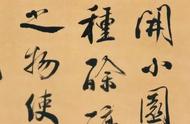 開小園
種除
之物使